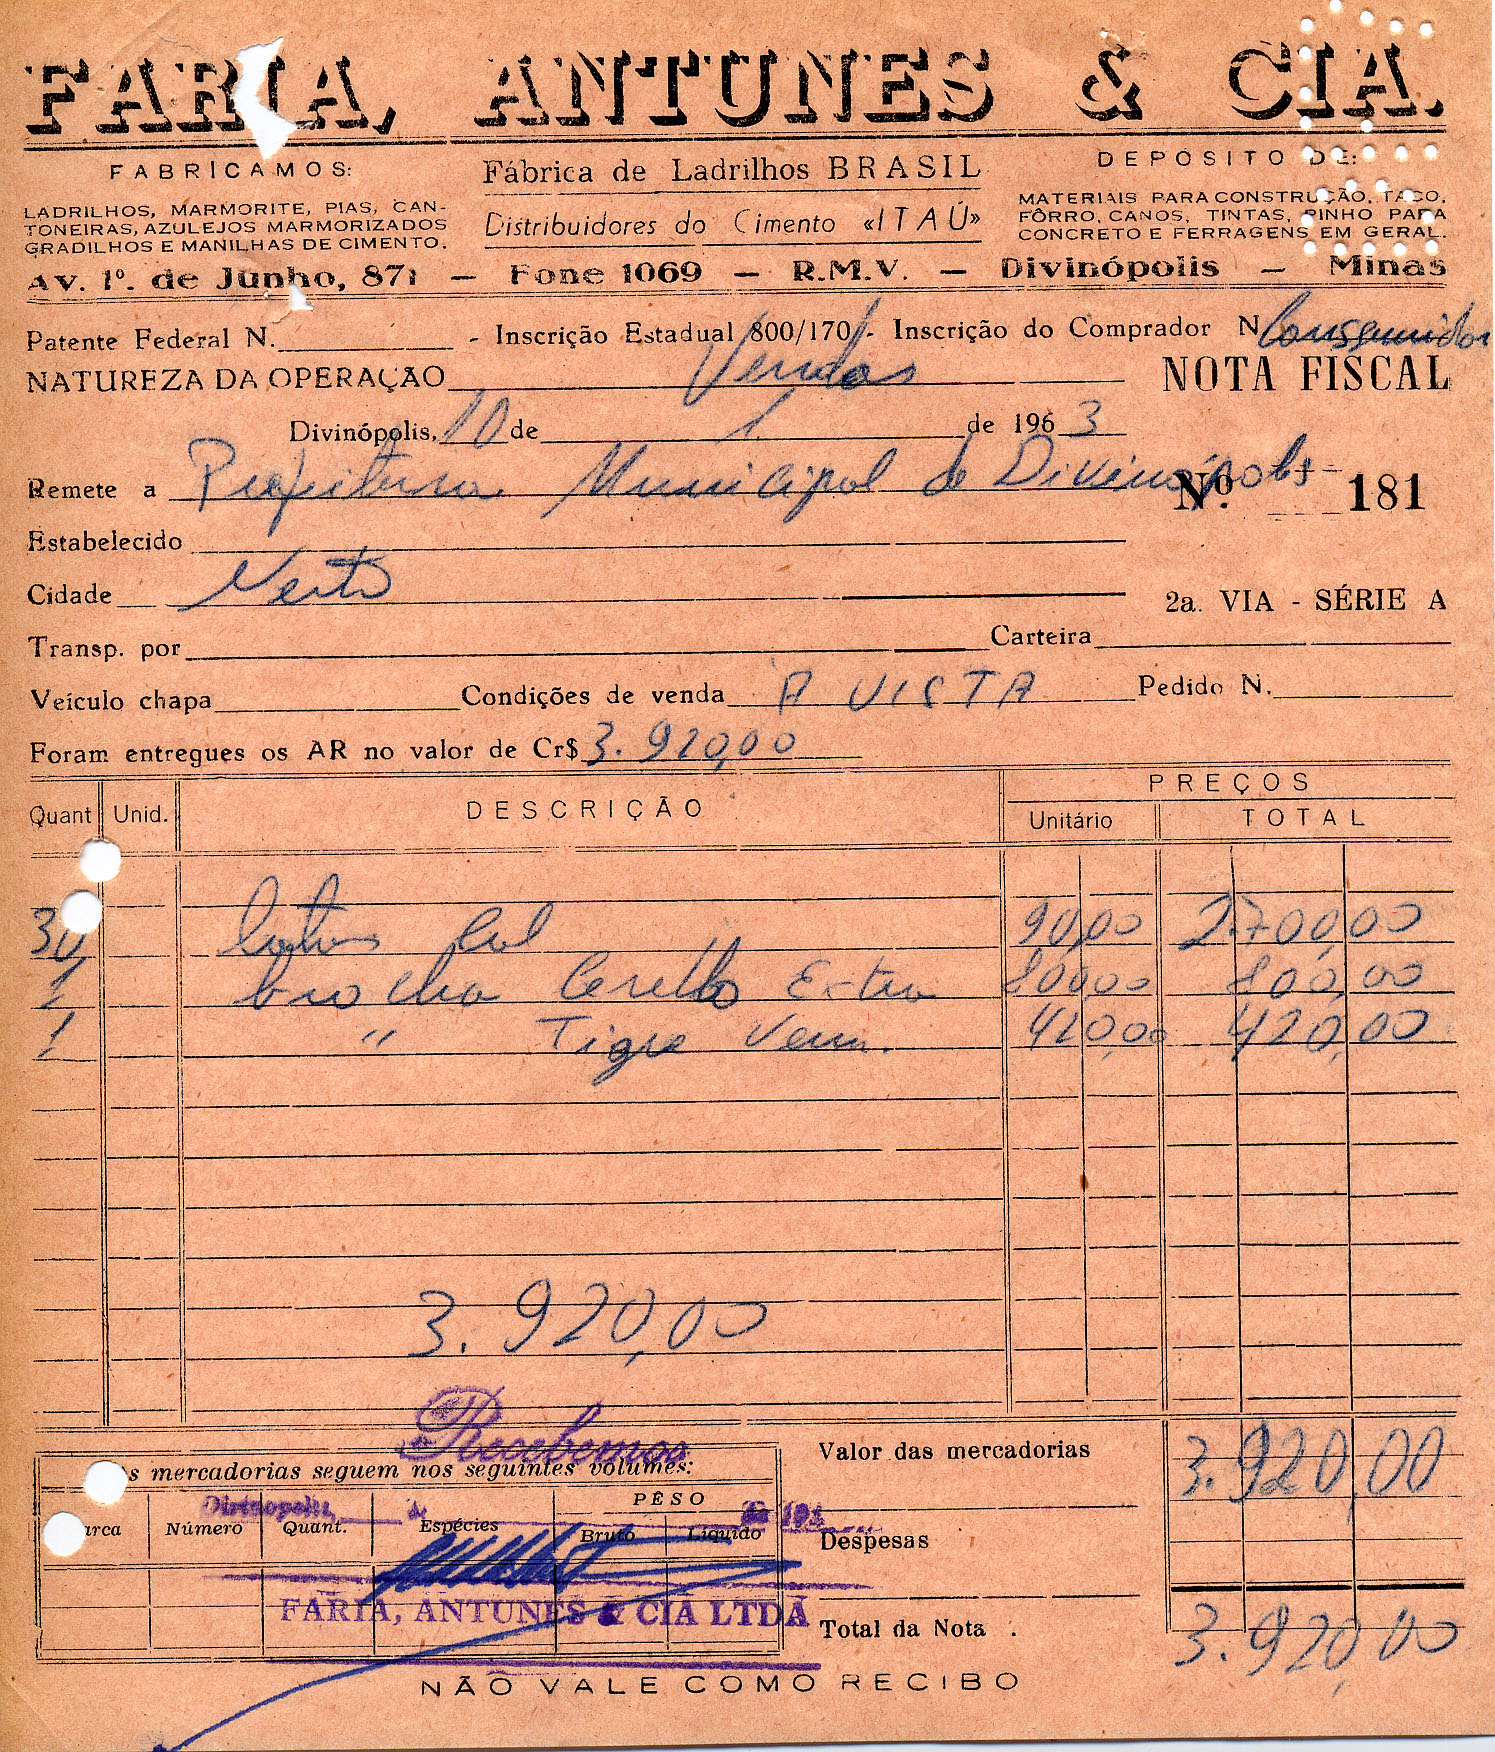 FARIA, ANTUNES & CIA.
FABRICAMOS:
LADRILHOS, MARMORITE, PIAS, CAN-
TONEIRAS, AZULEJOS MARMORIZADOS
GRADILHOS E MANILHAS DE CIMENTO.
Fábrica de Ladrilhos BRASIL
Distribuidores do Cimento «ITAÚ»
DEPÓSITO DE:
MATERIAIS PARA CONSTRUÇÃO, TACO,
FÔRRO, CANOS, TINTAS, PINHO PARA
CONCRETO E FERRAGENS EM GERAL.
Av. 1º. de Junho, 871 — Fone 1069 — R.M.V. — Divinópolis — Minas
Patente Federal N. - Inscrição Estadual 800/170 - Inscrição do Comprador N Consumidor
NATUREZA DA OPERAÇÃO Vendas NOTA FISCAL
Divinópolis, 10 de 1 de 1963
Remete a Prefeitura Municipal de Divinópolis Nº. 181
Estabelecido
Cidade Nesta
2a. VIA - SÉRIE A
Transp. por Carteira
Veículo chapa Condições de venda A VISTA Pedido N.
Foram entregues os AR no valor de Cr$ 3.920,00
Quant Unid. DESCRIÇÃO PREÇOS
Unitário TOTAL
30 Cal 90,00 2.700,00
1 brocha Extra 800,00 800,00
1 " Tigre Verm. 420,00 420,00
3.920,00
Recebemos
s mercadorias seguem nos seguintes volumes:
Divinópolis, de de 19
arca Número Quant. Espécies PÊSO
Bruto Líquido
FARIA, ANTUNES & CIA LTDA
Valor das mercadorias 3.920,00
Despesas
Total da Nota . 3.920,00
NÃO VALE COMO RECIBO